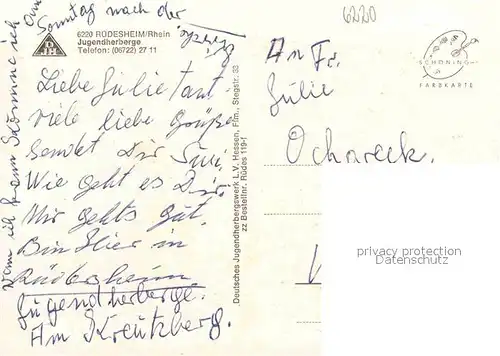 Sonntag nach der
6220 RÜDESHEIM/Rhein
Jugendherberge
Telefon: (06722) 27 11
Liebe Julie tant
viele liebe Grüße
sendet Dir
Wie geht es Dir
Mir gehts gut.
Bin Hier in
Rüdesheim
Jugendherberge.
Am Kreutzberg.
Wenn ich komm komme ich
Deutsches Jugendherbergswerk L.V. Hessen, Ffm., Stegstr. 33
zz Bestellnr. Rüdes 119-1
6220
An Fr.
Julie
Ochareck.
SCHÖNING
FARBKARTE
privacy protection
Datenschutz